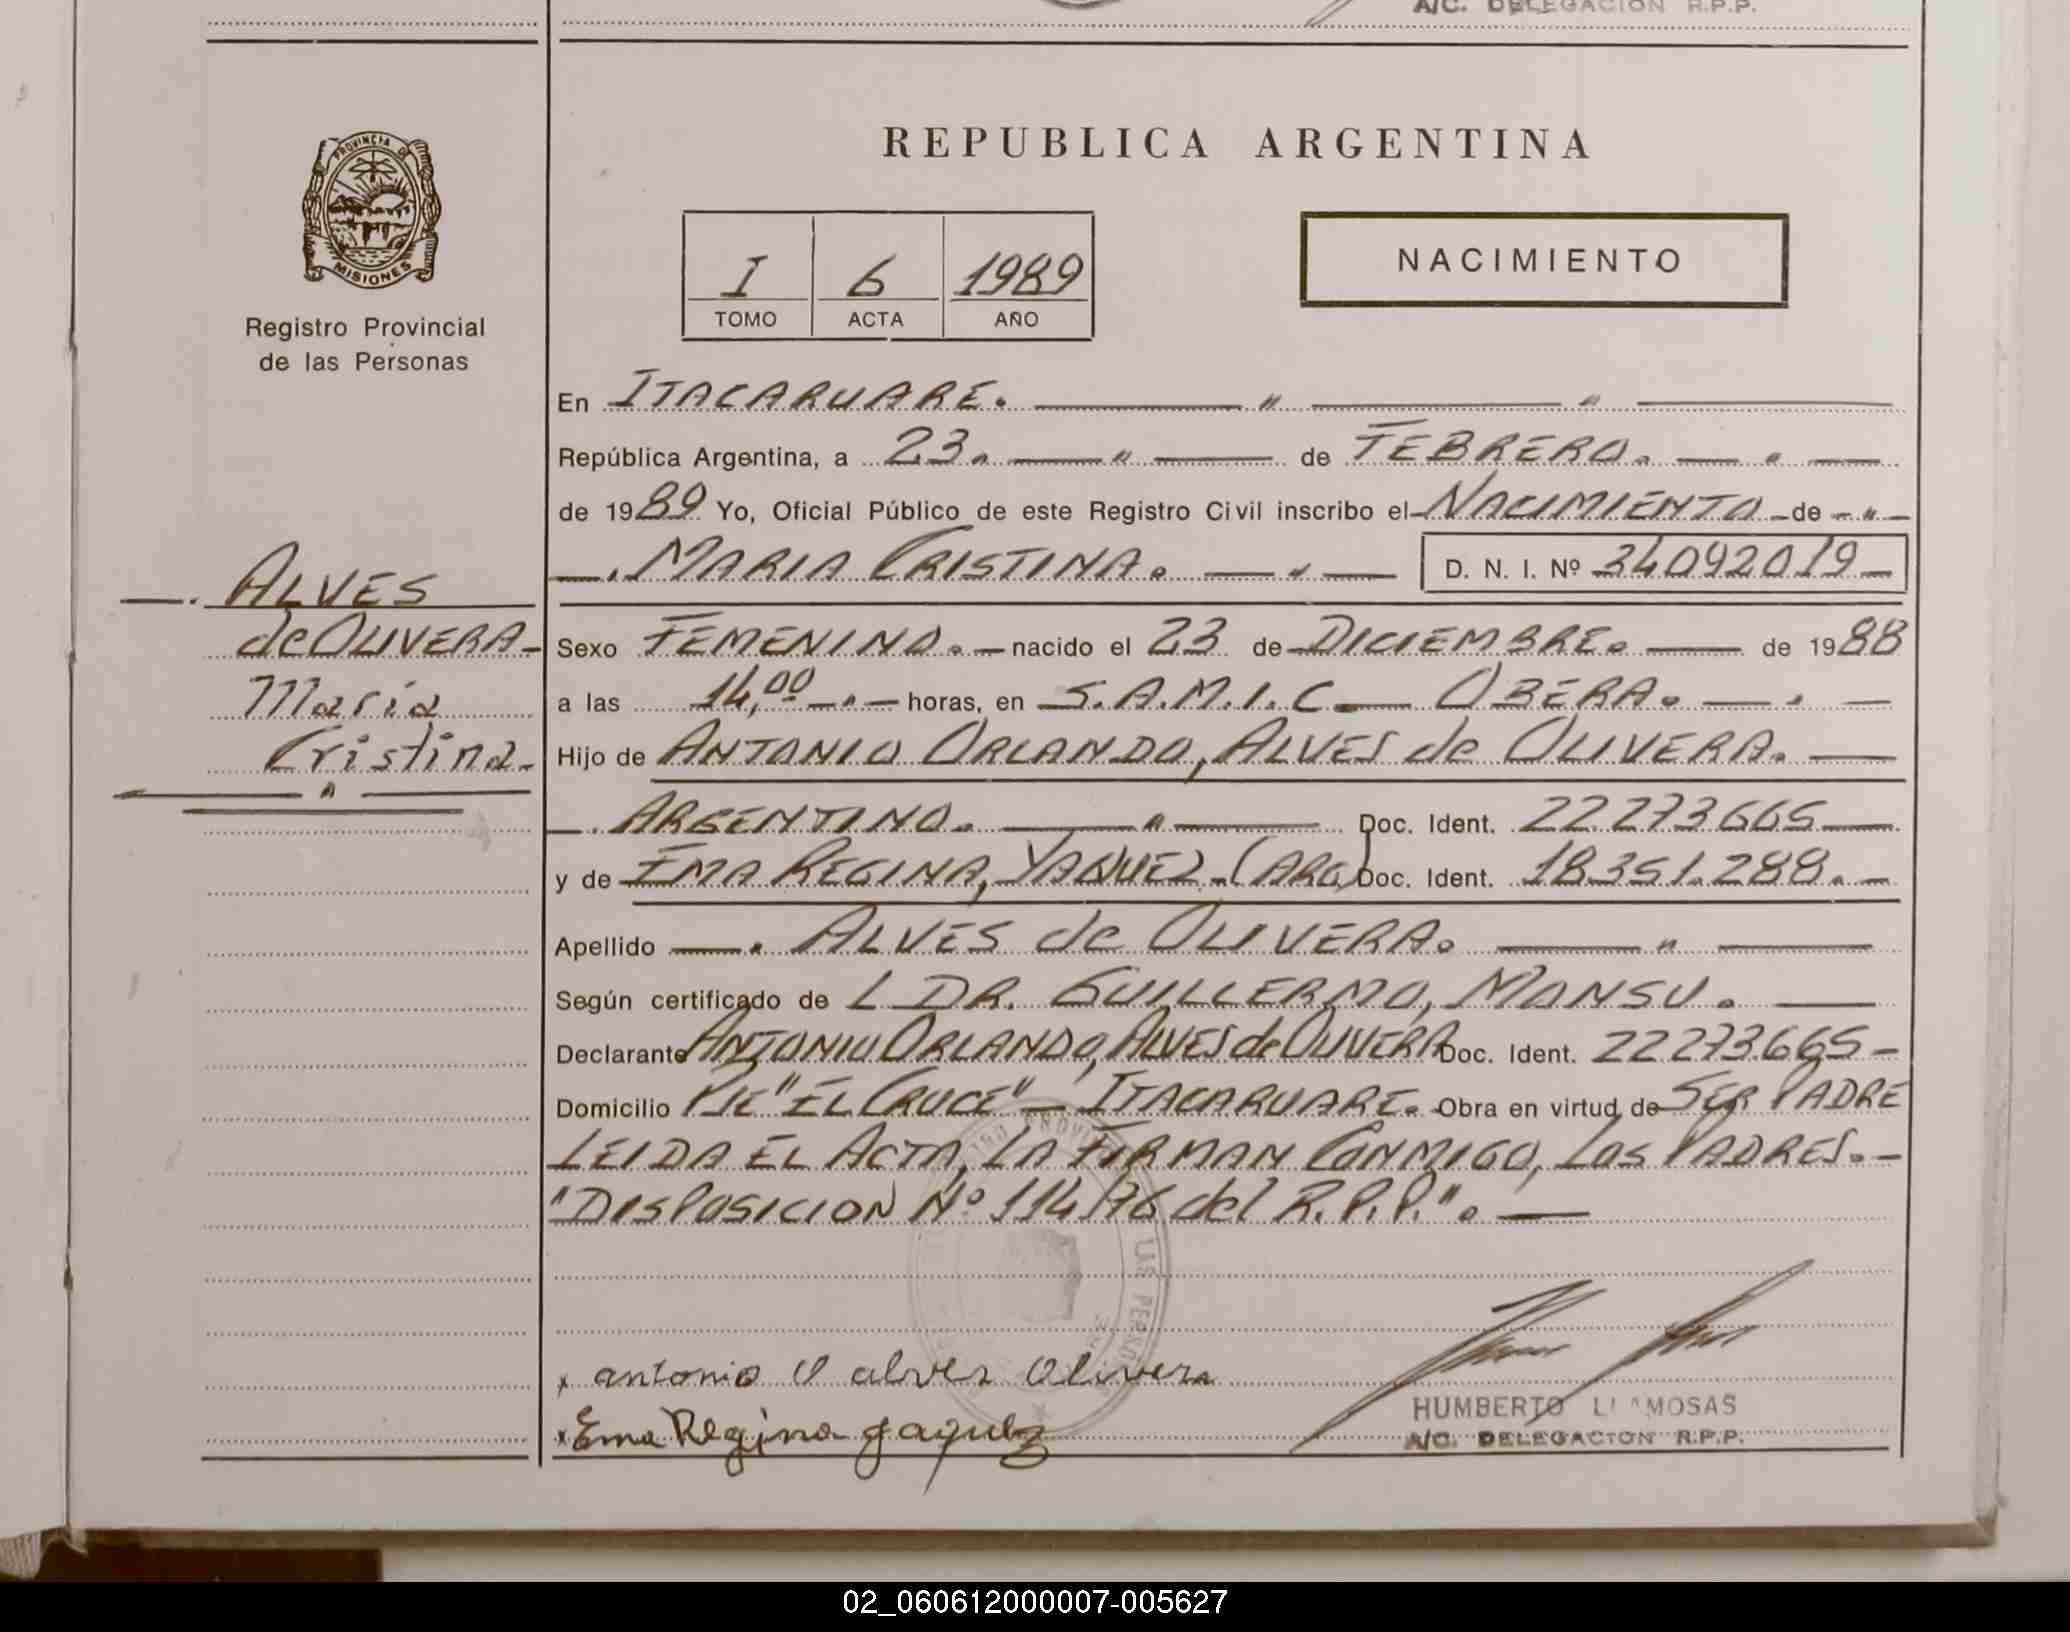 A/C. DELEGACION R.P.P.
PROVINCIA DE
MISIONES
Registro Provincial
de las Personas
REPUBLICA ARGENTINA
I 6 1989
TOMO ACTA AÑO
NACIMIENTO
En ITACARUARE. — " — " —
República Argentina, a 23. — " — de FEBRERO. — " —
de 1989 Yo, Oficial Público de este Registro Civil inscribo el NACIMIENTO de — " —
—. MARIA CRISTINA. — " — D. N. I. Nº 34092019 —
—. ALVES
de OLIVERA-
María
Cristina-
Sexo FEMENINO. — nacido el 23 de DICIEMBRE. — de 1988
a las 14,00 — " — horas, en S.A.M.I.C — OBERA. — " —
Hijo de ANTONIO ORLANDO, ALVES de OLIVERA. —
—. ARGENTINO. — " — Doc. Ident. 22273665 —
y de EMA REGINA, YAQUEZ - (ARG) Doc. Ident. 18.351.288. —
Apellido —. ALVES de OLIVERA. — " —
Según certificado de L DR. GUILLERMO, MONSU. —
Declarante ANTONIO ORLANDO, ALVES de OLIVERA Doc. Ident. 22273665 —
Domicilio "EL CRUCE" — ITACARUARE. Obra en virtud de SER PADRE
LEIDA EL ACTA, LA FIRMAN CONMIGO, LOS PADRES. —
"DISPOSICION Nº 114/76 del R.P.P.". —
x antonio O alves Olivera
x Ema Regina yaquez
HUMBERTO LLAMOSAS
A/C. DELEGACION R.P.P.
02_060612000007-005627